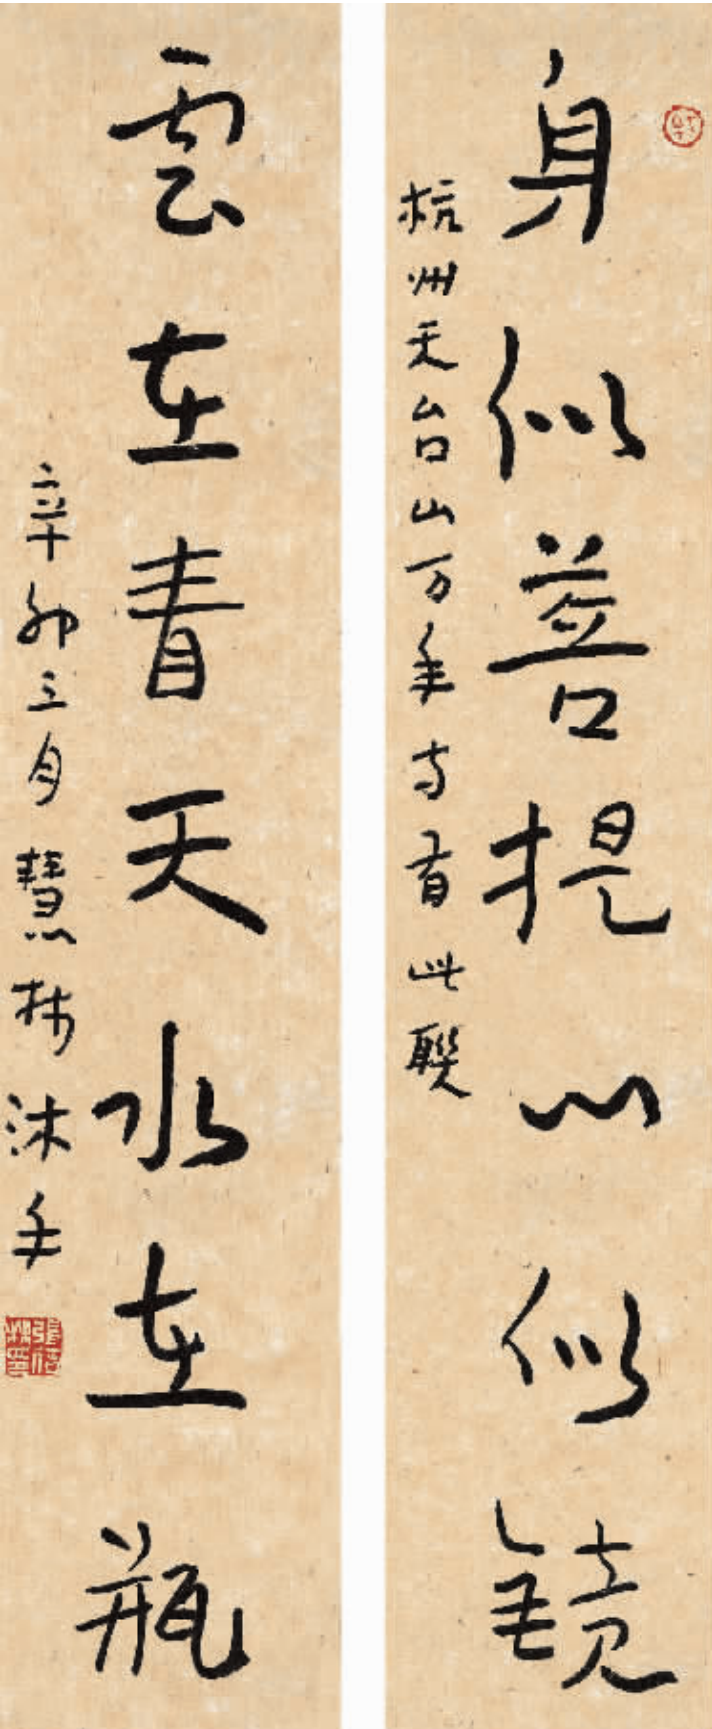 身似菩提心似镜
杭州天台山万年寺有此联
雲在青天水在瓶
辛卯三月慧林沐手